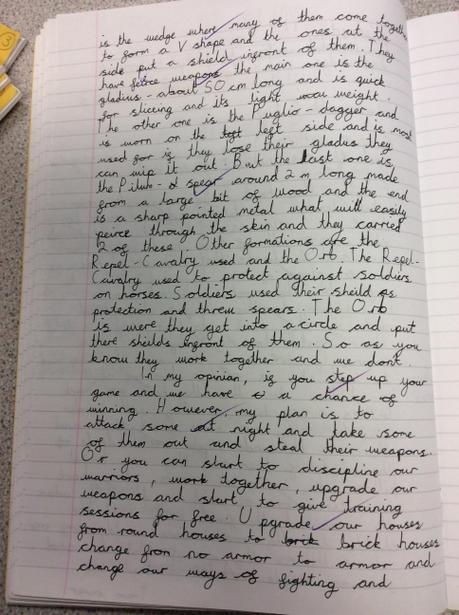 is the wedge where many of them come together
to form a V shape and the ones at the
side put a shield infront of them. They
have feirce weapons the main one is the
gladius - about 50 cm long and is quick
for sliccing and its light weight.
The other one is the Puglio - dagger and
is worn on the left side and is most
used for if they lose their gladus they
can wip it out. But the last one is
the Pilum - a spear around 2 m long made
from a large bit of wood and the end
is a sharp pointed metal what will easily
peirce through the skin and they carried
2 of these. Other formations are the
Repel-Cavalry used and the Orb. The Repel-
Cavalry used to protect against soldiers
on horses. Soldiers used their sheild as
protection and threw spears. The Orb
is were they get into a circle and put
there sheilds infront of them. So as you
know they work together and we dont.
In my opinion, if you step up your
game and we have a chance of
winning. However, my plan is to
attack some at night and take some
of them out and steal their weapons.
Or you can start to discipline our
warriors, work together, upgrade our
weapons and start to give training
sessions for free. Upgrade our houses
from round houses to brick houses
change from no armor to armor and
change our ways of fighting and